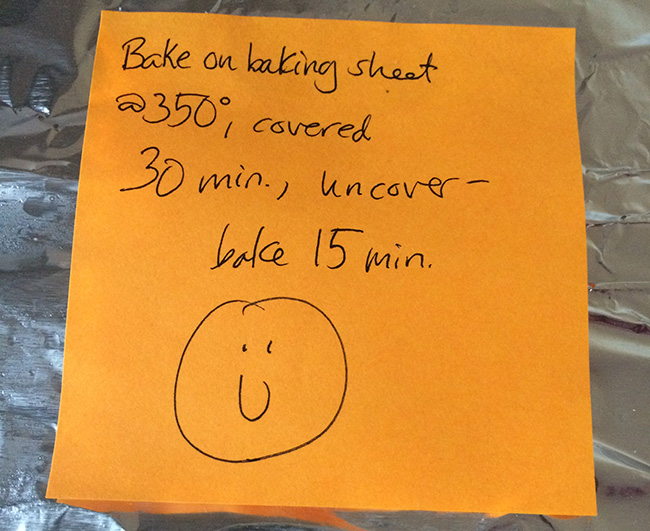 Bake on baking sheet
@350°, covered
30 min., uncover -
bake 15 min.